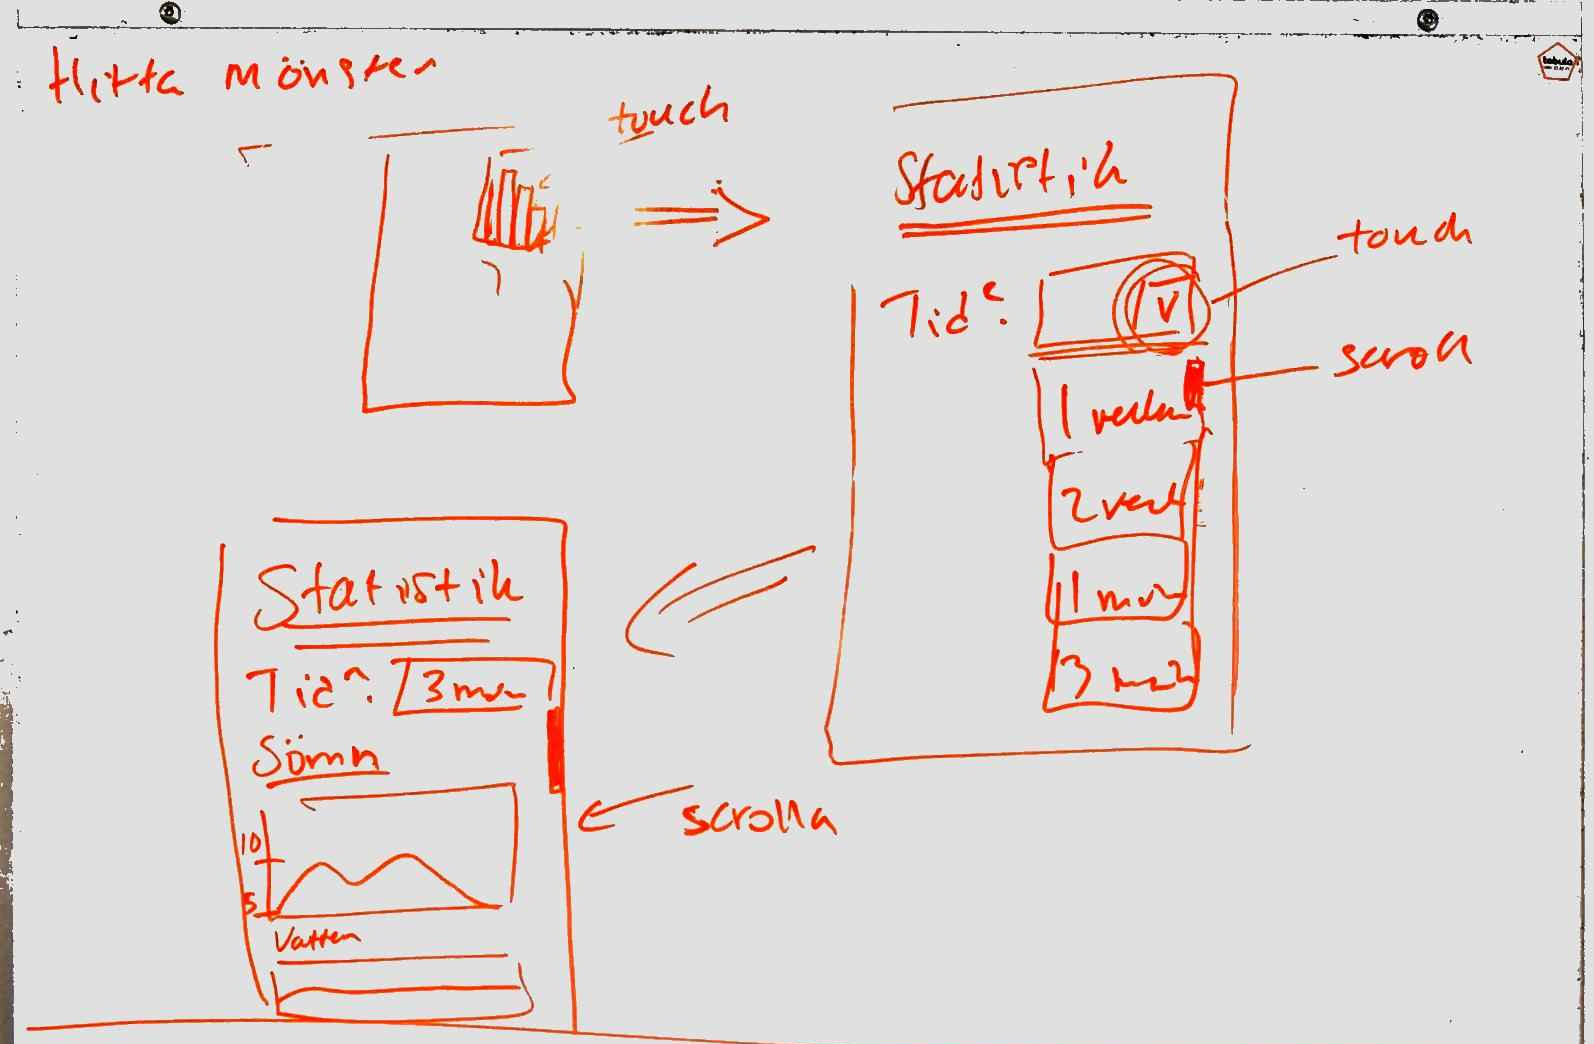 Hitta mönster
touch
Statistik
Tid:
V
touch
scroll
1 vecka
2 veck
1 mån
3 mån
Statistik
Tid: 3 mån
Sömn
10
5
scrolla
Vatten
tabula